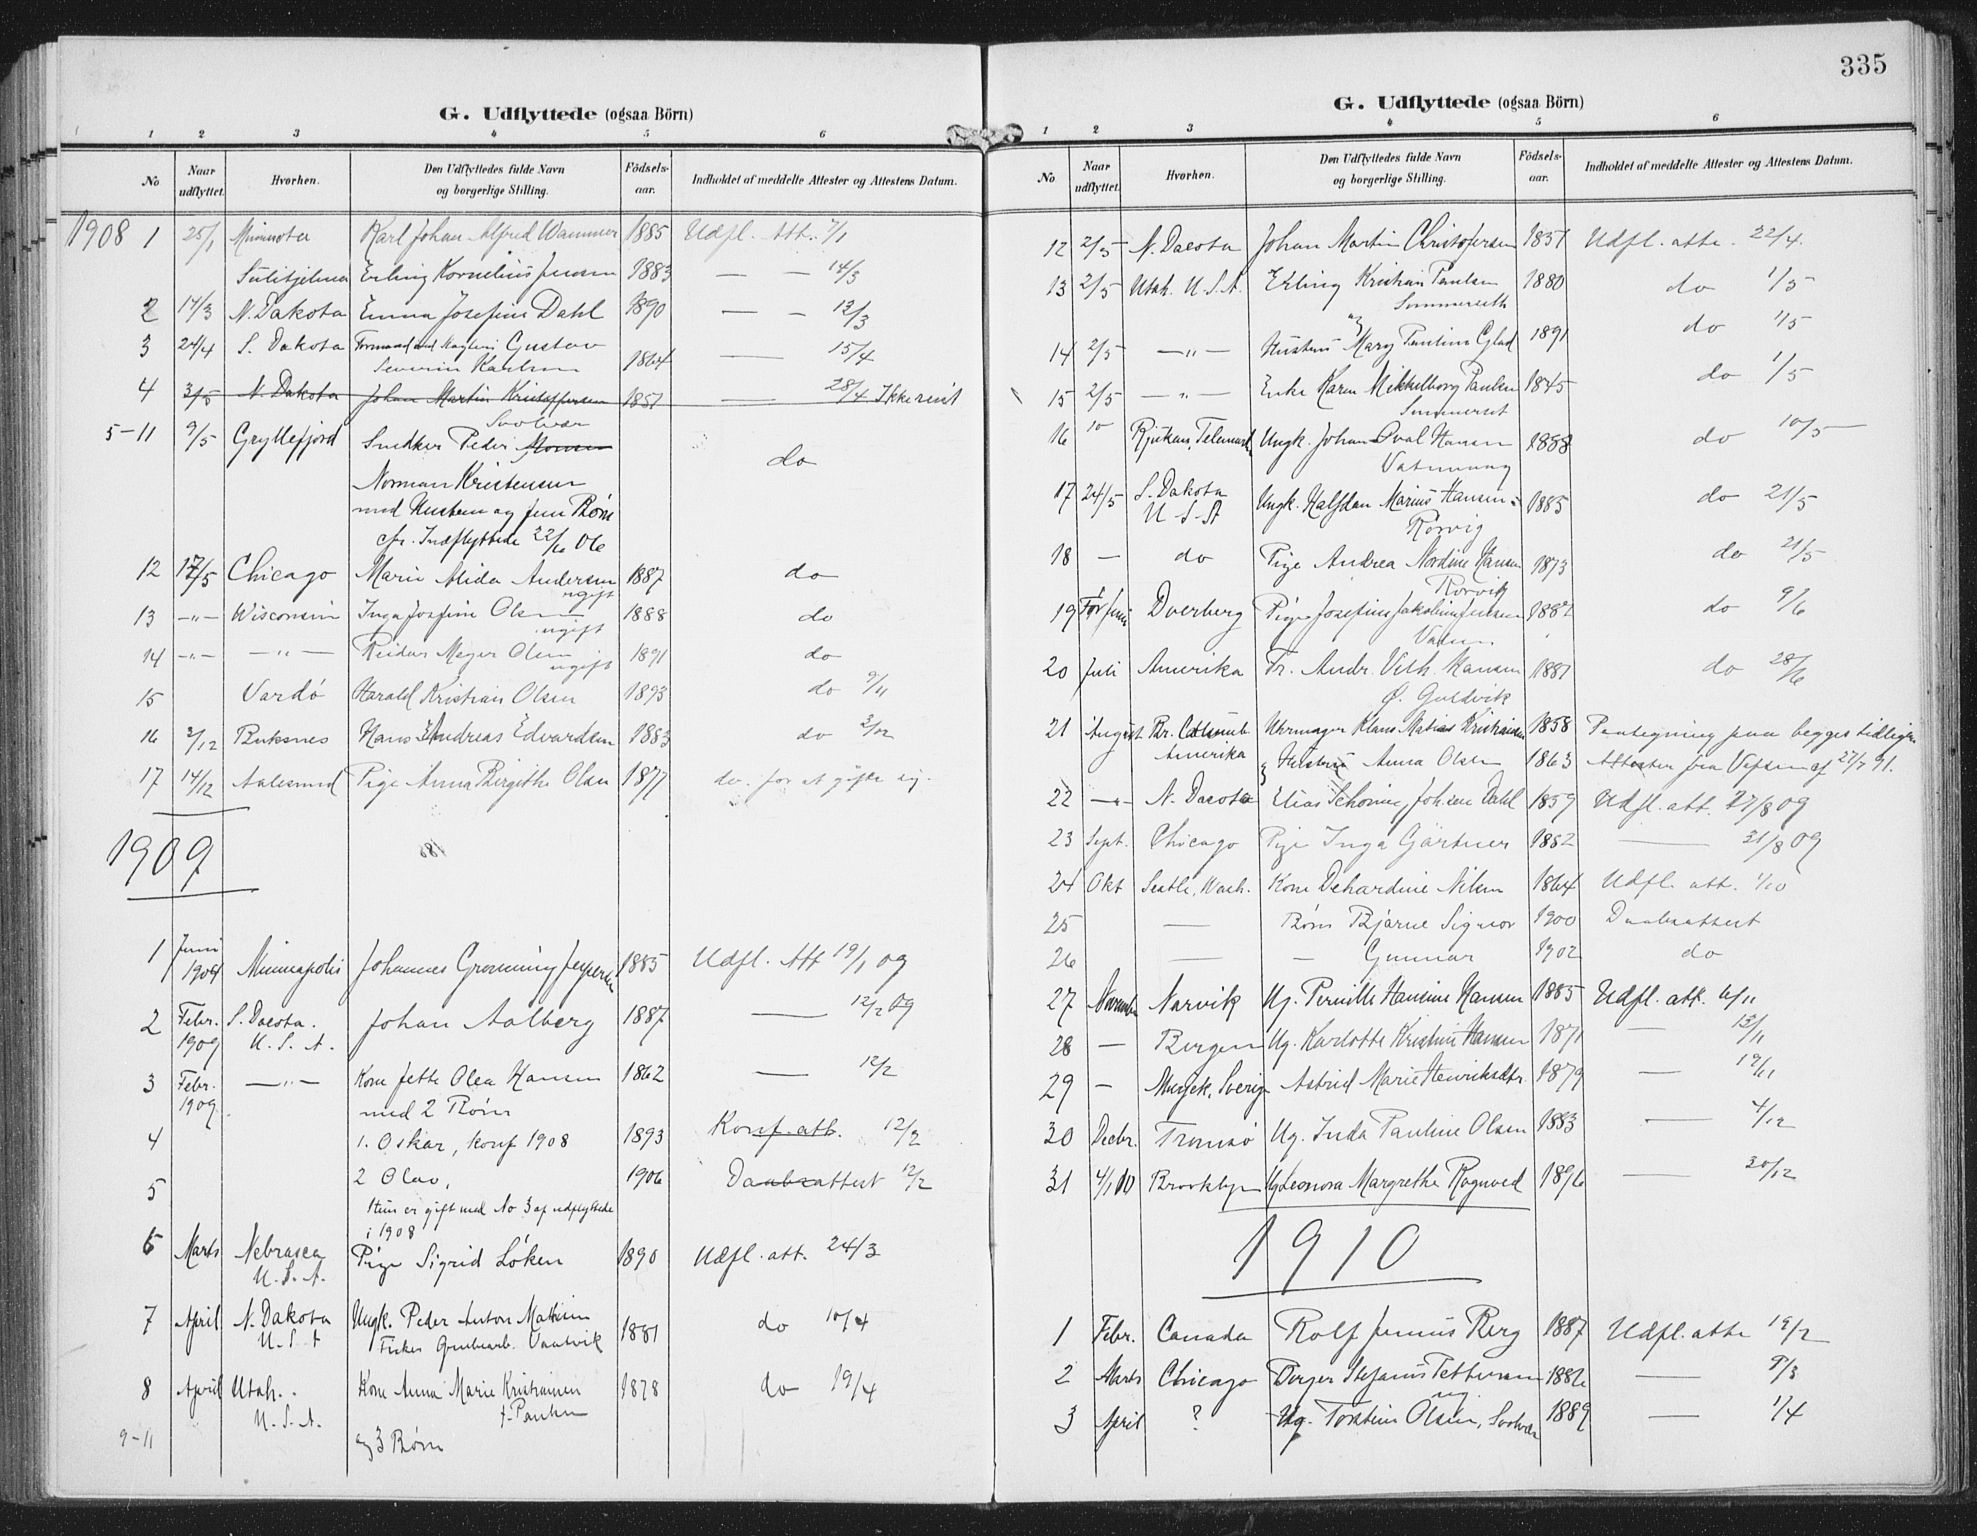 G. Udflyttede (ogsaa Börn)
1 2 3 4 5 6
No Naar udflyttet Hvorhen. Den Udflyttedes fulde Navn og borgerlige Stilling. Födsels-aar. Indholdet af meddelte Attester og Attestens Datum.
1908 1 25/1 Karl Johan Alfred Wammer 1885 Udfl. Att. 7/1
Sulitjelma Erling Kornelius Jensen 1883 — — 14/3
2 17/3 N. Dakota Emma Josefine Dahl 1890 — — 12/3
3 24/4 S. Dakota Gustav
Severin Karlsen 1864 — 15/4
4 3/5 N. Dakota Johan Martin Kristoffersen 1851 — 28/4 Ikke reist
Svolvær
5-11 9/5 Gryllefjord Snedker Peder
Norman Kristensen do
med Hustru og fem Börn
cfr. Indflyttede 22/10 06
12 17/5 Chicago Marie Alida Andersen 1887 do
ugift
13 —„— Wisconsin Inga Josefine Olsen 1888 do
ugift
14 —„— —„— Reidar Meyer Olsen 1891 do
ugift
15 Vardö Harald Kristian Olsen 1893 do 9/11
16 2/12 Buksnes Hans Andreas Edvardsen 1883 do 2/12
17 14/12 Aalesund Pige Anna Birgithe Olsen 1877 do. for at gifte sig.
1909
1 Juni Johannes Grönning Jespersen 1885 Udfl. Att 19/1 09
190 Minneapolis
2 Febr. S. Dacota. Johan Aalberg 1887 — 12/2 09
1909 U. S. A.
3 Febr. —„— Kone Jette Olea Hansen 1862 — 12/2
1909 med 2 Börn
4 1. Oskar, konf 1908 1893 Konf. att. 12/2
5 2 Olav, 1906 Daabsattest 12/2
Hun er gift med No 3 af udflyttede
i 1908
6 Marts Nebrasca Pige Sigrid Löken 1890 Udfl. att. 24/3
U. S. A.
7 April N. Dakota Ungk. Peder Anton Mathisen 1881 do 10/4
U. S. A Fisker
8 April Utah. Kone Anna Marie Kristiansen 1878 do 19/4
U. S. A. f. Paulsen
9-11 og 3 Börn
335
G. Udflyttede (ogsaa Börn)
1 2 3 4 5 6
No Naar udflyttet Hvorhen. Den Udflyttedes fulde Navn og borgerlige Stilling. Födsels-aar. Indholdet af meddelte Attester og Attestens Datum.
12 2/5 N. Dacota Johan Martin Christofersen 1851 Udfl. atte. 22/4.
13 2/5 Utah. U.S.A. Erling Kristian Paulsen 1880 do 1/5
Sommerseth
14 2/5 —„— og Hustru Mary Pauline Glad 1891 do 1/5
15 2/5 —„— Enke Karen Mikkelborg Paulsen 1845 do 1/5
Sommerset
16 10 Rjukan, Telemark Ungk. Johan Oval Hansen 1888 do 10/5
17 24/5 S. Dakota Ungk. Halfdan Marius Hansen 1885 do 21/5
U S A Rörvig
18 — do Pige Andrea Nordine Hansen 1873 do 21/5
Rörvik
19 Før Juni Dverberg Pige Josefine Jakobine Jensen 1882 do 9/6
20 Juli Amerika Fr. Andr. Vilh. Hansen 1881 do 28/6
Ø. Guldvik
21 August Br. Columb. Uhrmager Klaus Matias Kristiansen 1858 Paategning paa begges tidligere
Amerika & Hustru Anna Olsen 1863 Attester fra Vefsen af 27/7 91.
22 —„— N. Dacota Elias Schöning Johsen Dahl 1859 Udfl. att. 27/8 09
23 Sept. Chicago Pige Inga Gärtner 1882 — 31/8 09
24 Okt Seatle, Wash. Kone Dehardine Nilsen 1864 Udfl. att. 1/10
25 — Börn Bjarne Signor 1900 Daabsattest
26 — — Gunnar 1902 do
27 November Narvik Ug. Pernille Hansine Hansen 1885 Udfl. att. 6/11
28 — Bergen Ug. Karlotte Kristine Hansen 1871 — 13/11
29 — Murjek, Sverige Astrid Marie Henriksdtr. 1879 — 19/11
30 Decbr. Tromsö Ug. Inda Pauline Olsen 1883 — 4/12
31 4/1 10 Brooklyn Ug Leonora Margrethe Rognved 1896 — 30/12
1910
1 Febr. Canada Rolf Junius Berg 1887 Udfl. atte 19/2
2 Marts Chicago Birger Stefanus Pettersen 1886 — 9/3
ug.
3 April ? Ug. Torstein Olsen, Svolvær 1889 — 1/4